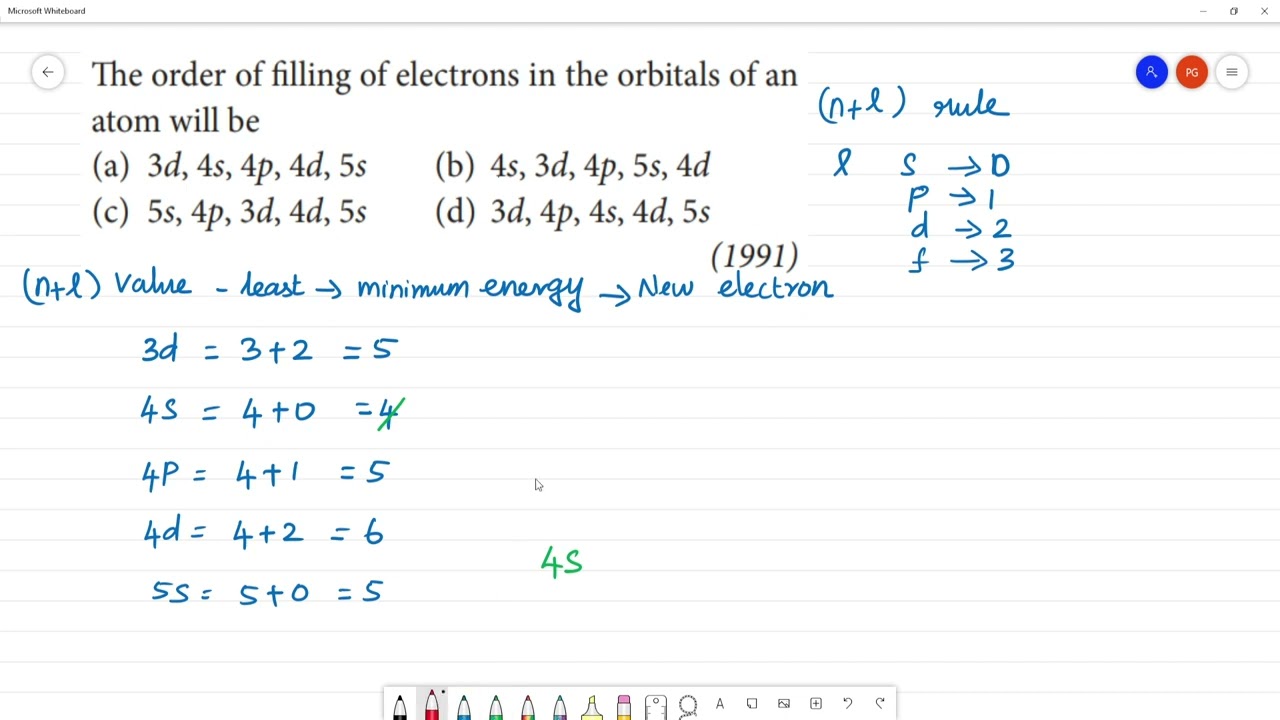 Microsoft Whiteboard
The order of filling of electrons in the orbitals of an
atom will be
(a) 3d, 4s, 4p, 4d, 5s (b) 4s, 3d, 4p, 5s, 4d
(c) 5s, 4p, 3d, 4d, 5s (d) 3d, 4p, 4s, 4d, 5s
(1991)
PG
(n+l) rule
l S → 0
P → 1
d → 2
f → 3
(n+l) Value - least → minimum energy → New electron
3d = 3+2 = 5
4S = 4+0 = 4
4P = 4+1 = 5
4d = 4+2 = 6
5S = 5+0 = 5
4S
A